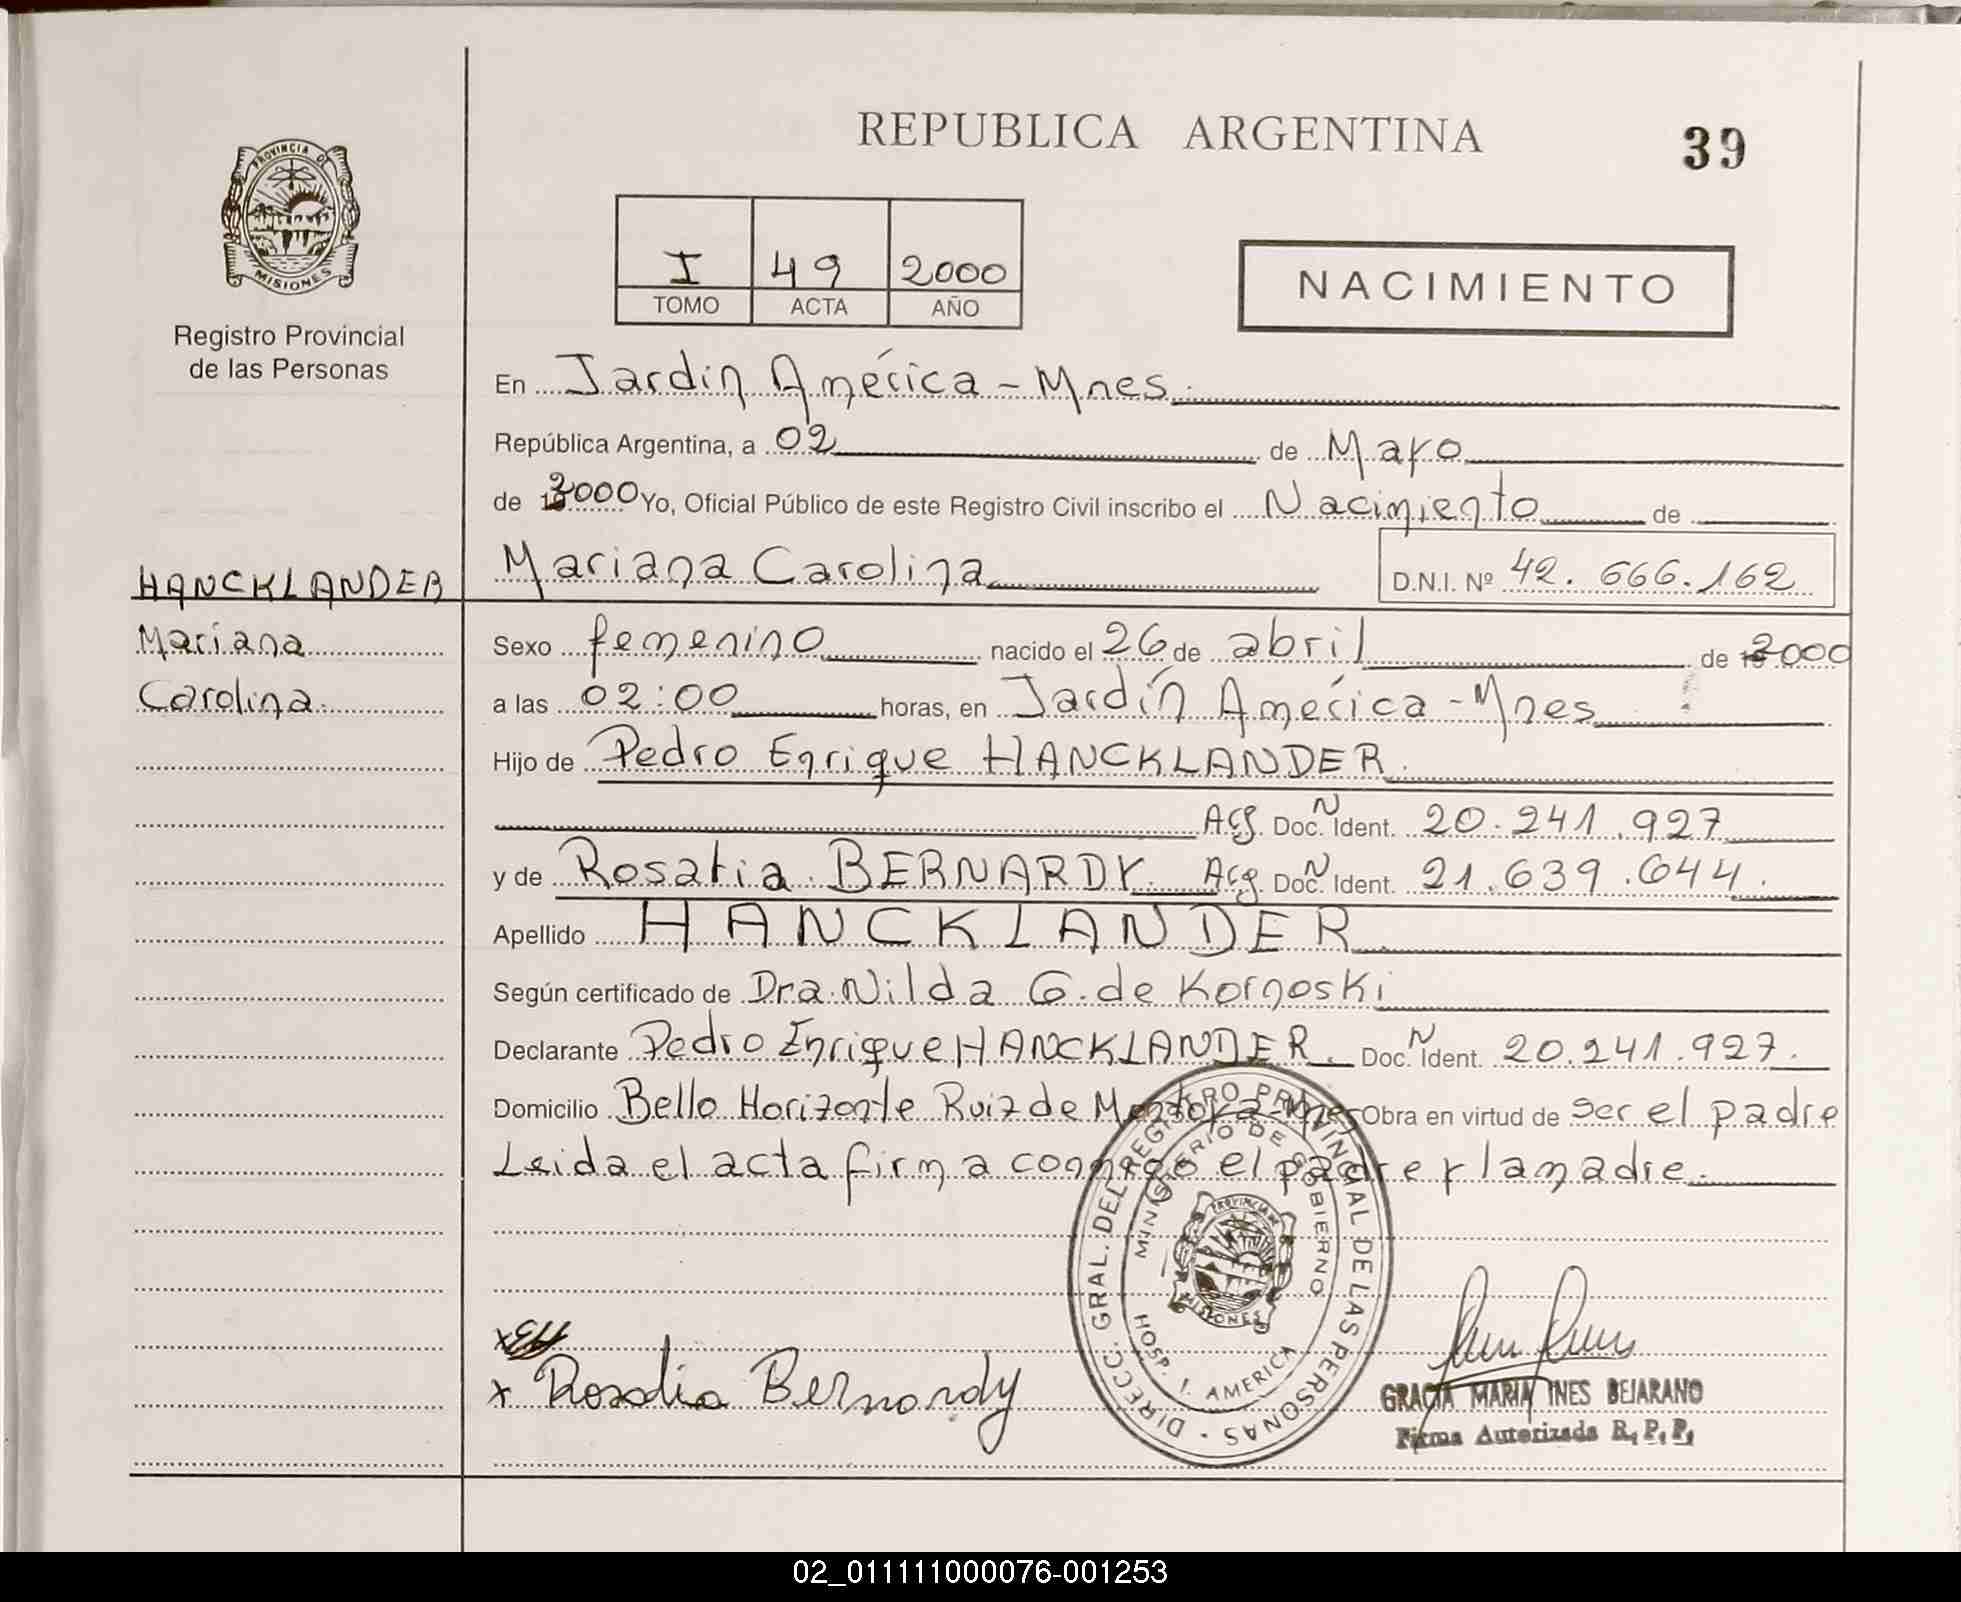 REPUBLICA ARGENTINA
39
PROVINCIA DE
MISIONES
Registro Provincial
de las Personas
I 49 2000
TOMO ACTA AÑO
NACIMIENTO
En Jardín América - Mnes.
República Argentina, a 02 de Mayo
de 2000 Yo, Oficial Público de este Registro Civil inscribo el Nacimiento de
HANCKLANDER
Mariana Carolina D.N.I. Nº 42.666.162
Mariana
Sexo femenino nacido el 26 de abril de 2000
Carolina.
a las 02:00 horas, en Jardín América - Mnes
Hijo de Pedro Enrique HANCKLANDER.
Arg. Doc. N Ident. 20.241.927
y de Rosalia BERNARDY. Arg. Doc. N Ident. 21.639.644.
Apellido HANCKLANDER.
Según certificado de Dra. Nilda G. de Kornoski
Declarante Pedro Enrique HANCKLANDER. Doc. N Ident. 20.241.927.
Domicilio Bello Horizonte Ruiz de Montoya - Mnes Obra en virtud de ser el padre
Leida el acta firma conmigo el padre y la madre.
DIRECC. GRAL. DEL REGISTRO PROVINCIAL DE LAS PERSONAS
MINISTERIO DE GOBIERNO
PROVINCIA DE
MISIONES
HOSP. J. AMERICA
x Rosalia Bernardy
GRACIA MARIA INES BEJARANO
Firma Autorizada R. P. P.
02_011111000076-001253